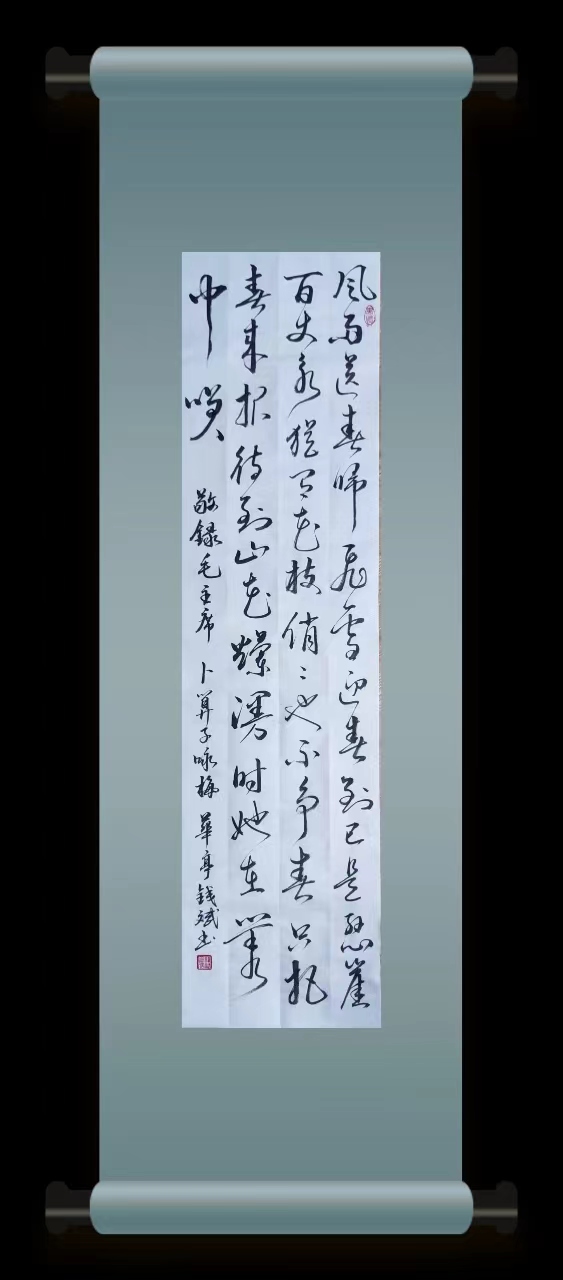 风雨送春归飞雪迎春到已是悬崖
百丈冰犹有花枝俏〻也不争春只把
春来报待到山花爛漫时她在丛
中笑 敬録毛主席 卜算子咏梅 華亭钱斌书